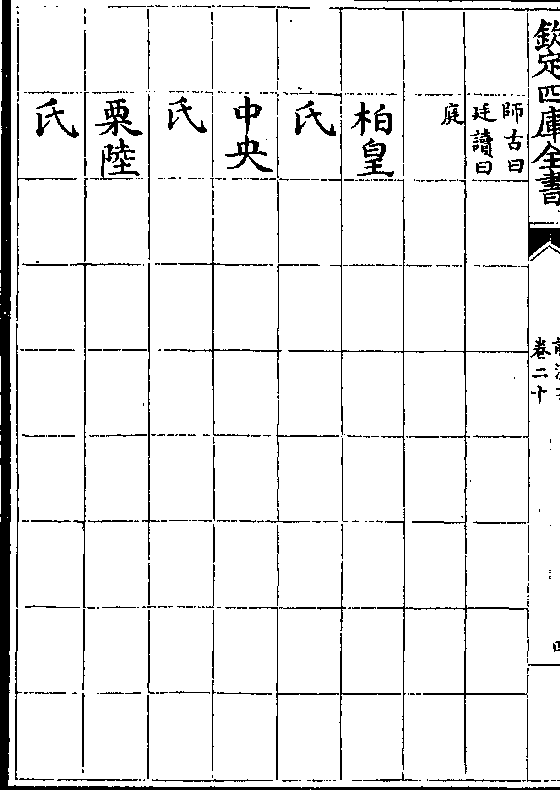 欽定四庫全書
卷二十
師古曰
廷讀曰
庭
柏皇
氏
中央
氏
栗陸
氏